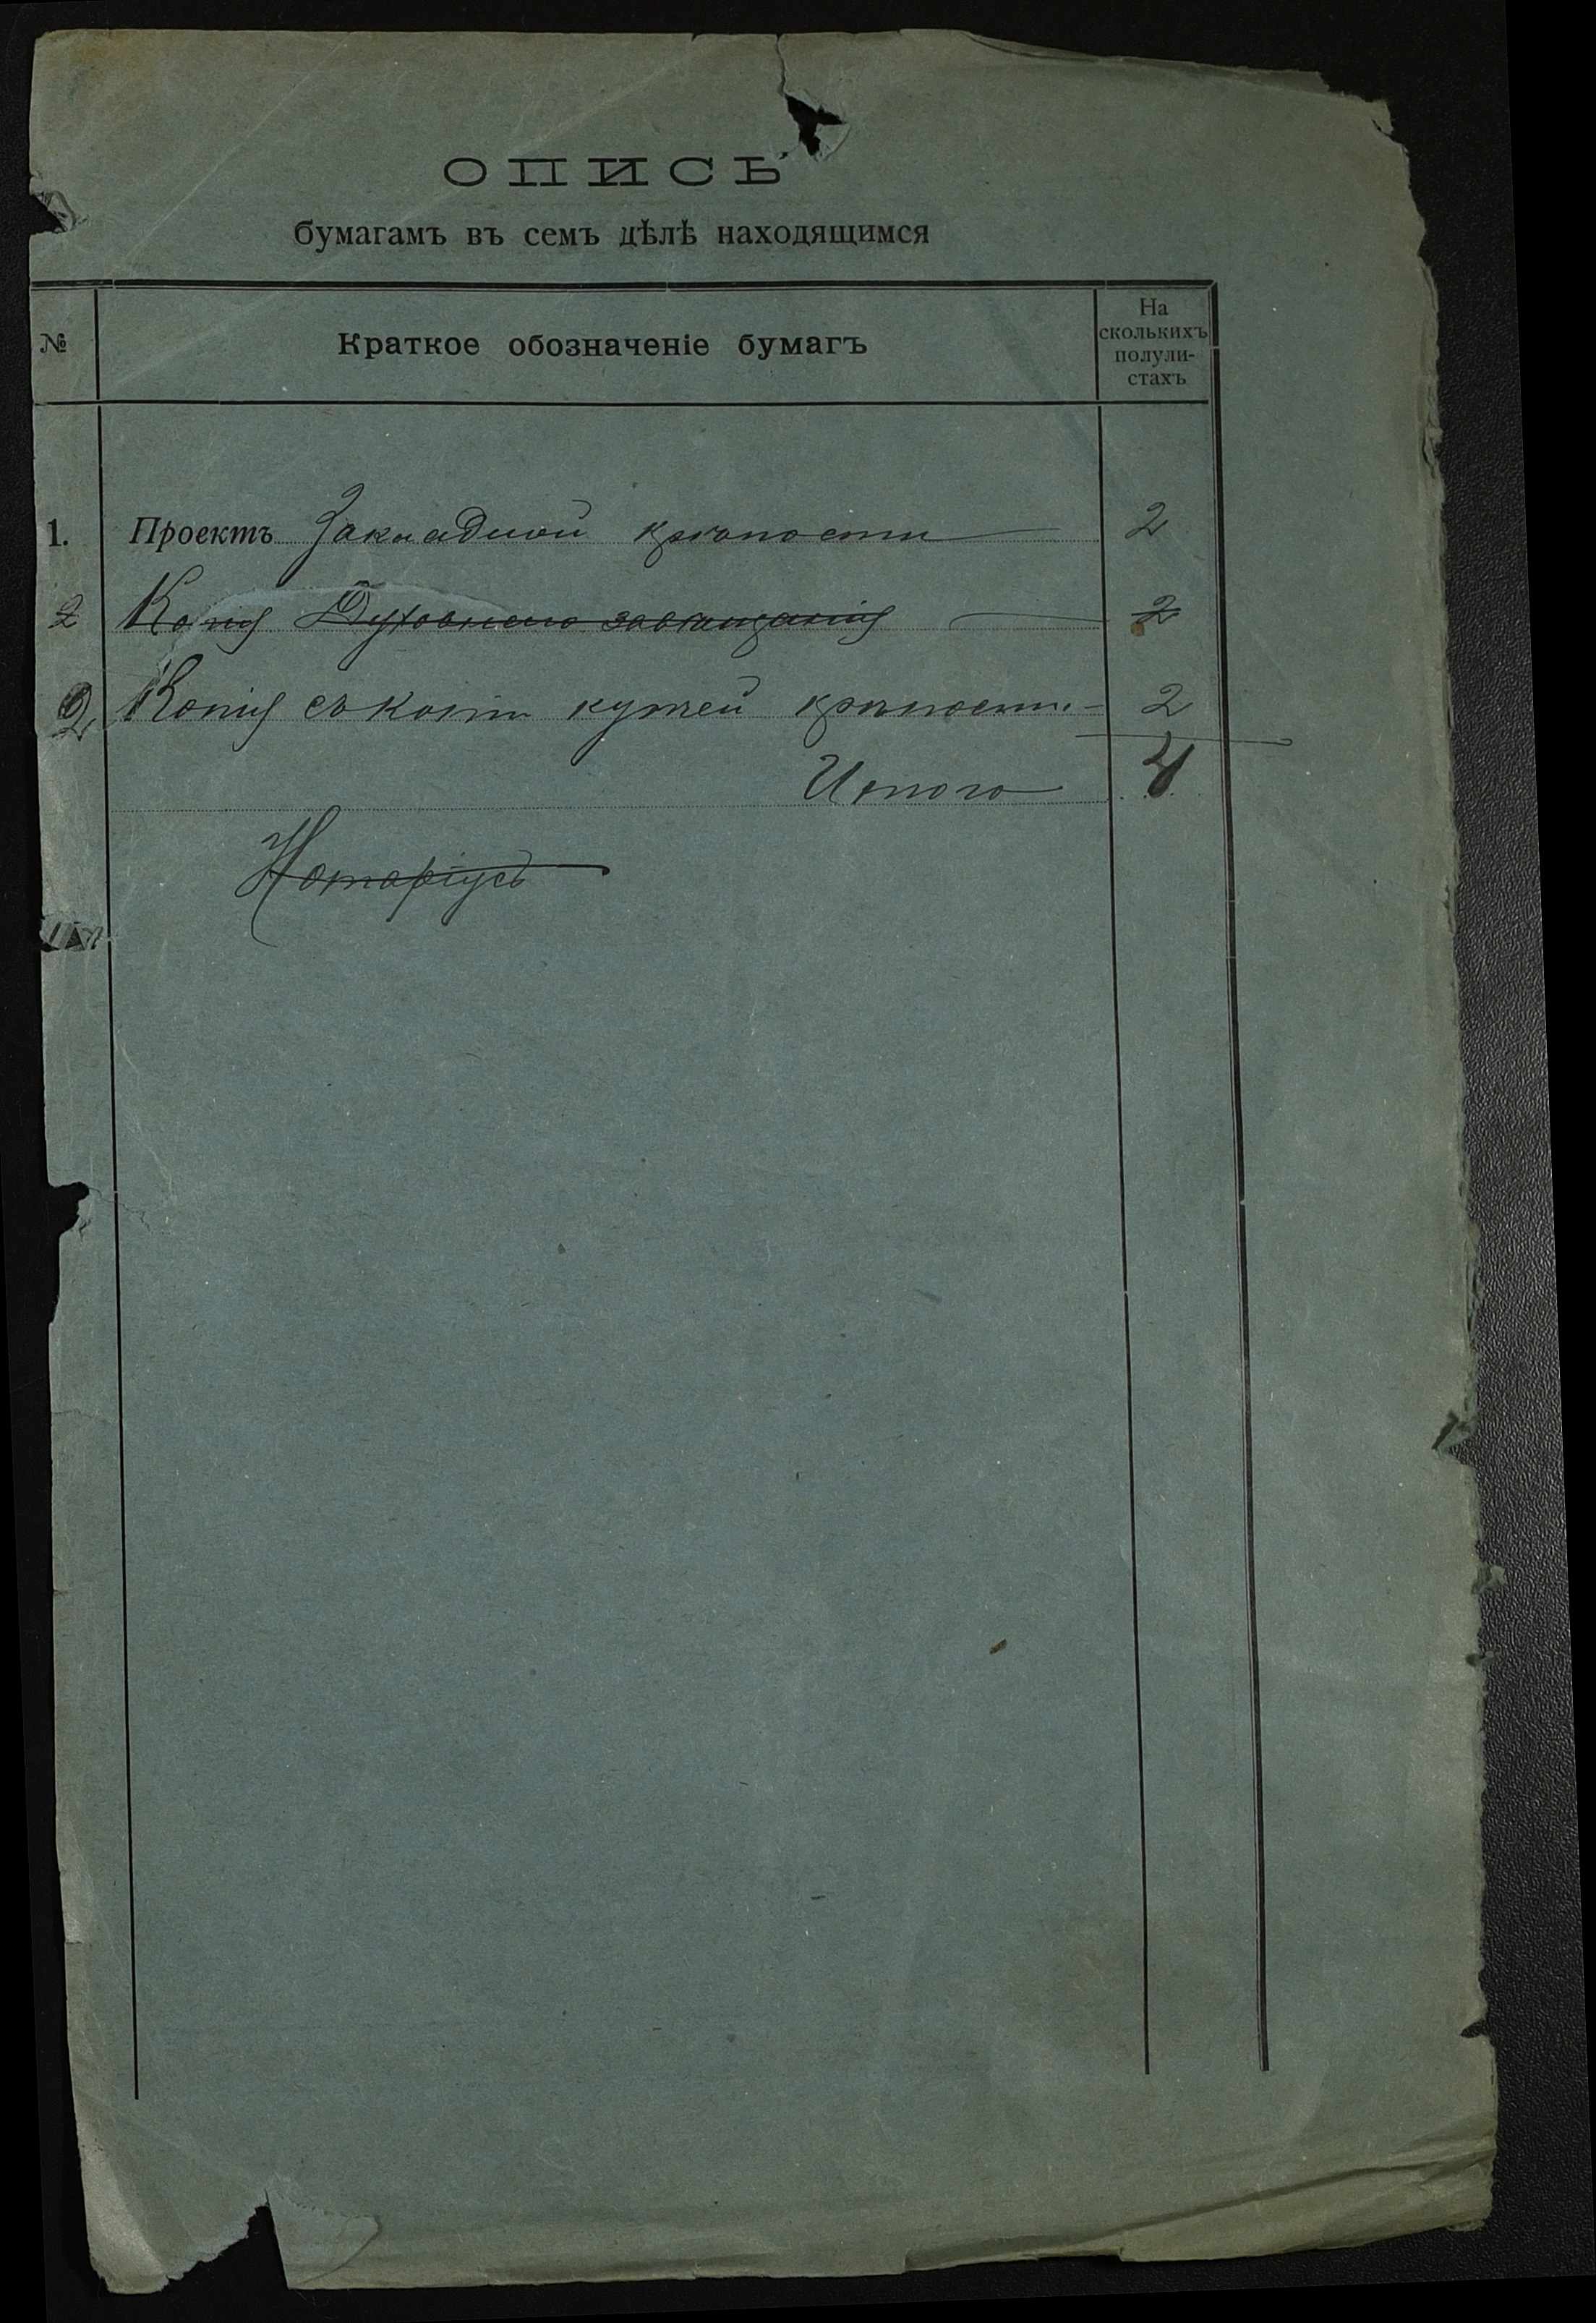 ОПИСЬ
бумагамъ въ семъ дѣлѣ находящимся
№ Краткое обозначеніе бумагъ На скольких​ъ полули-стахъ
1. Проектъ Закладной крѣпости 2
2 Копія Духовнаго завѣщанія 2
2 Копія съ копіи купчей крѣпости 2
Итого 4
Нотаріусъ